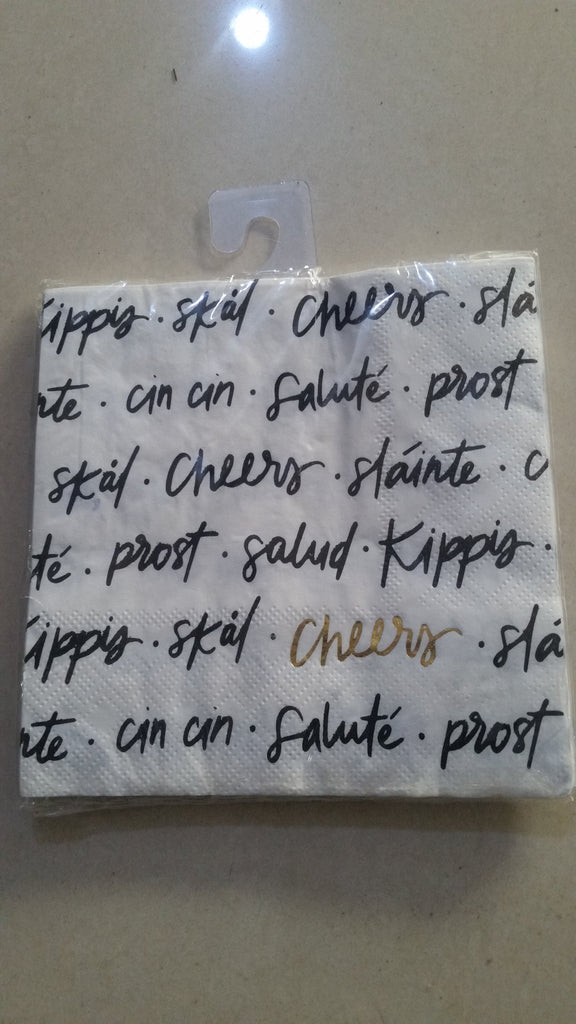 ippis · skål · cheers · slá
nte · cin cin · saluté · prost
skål · cheers · sláinte · c
té · prost · salud · Kippis ·
ippis · skål · cheers · slá
nte · cin cin · saluté · prost